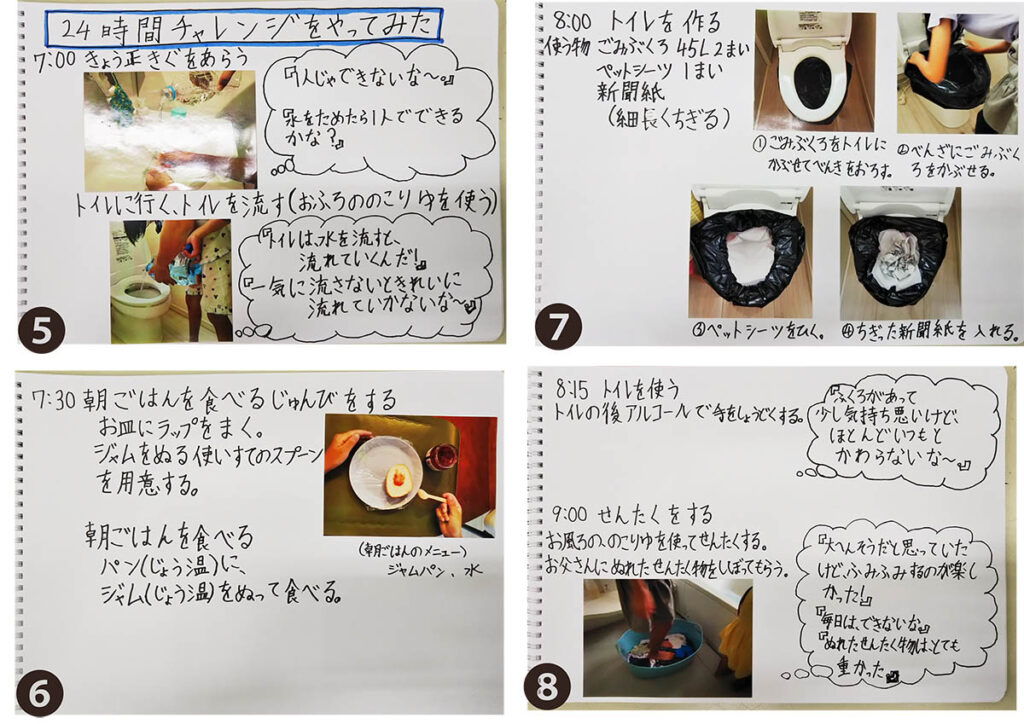 24時間チャレンジをやってみた
7:00 きょう正きぐをあらう
『1人じゃできないな〜。』
『水をためたら1人でできる
かな?』
トイレに行く、トイレを流す(おふろののこりゆを使う)
『トイレは、水を流すと、
流れていくんだ!』
『一気に流さないときれいに
流れていかないな〜』
5
7:30 朝ごはんを食べるじゅんびをする
お皿にラップをまく。
ジャムをぬる使いすてのスプーン
を用意する。
朝ごはんを食べる
パン(じょう温)に、
ジャム(じょう温)をぬって食べる。
(朝ごはんのメニュー)
ジャムパン、水
6
8:00 トイレを作る
使う物 ごみぶくろ 45L 2まい
ペットシーツ 1まい
新聞紙
(細長くちぎる)
①ごみぶくろをトイレに
かぶせてべんきをおろす。
②べんざにごみぶく
ろをかぶせる。
③ペットシーツをひく。
④ちぎった新聞紙を入れる。
7
8:15 トイレを使う
トイレの後アルコールで手をしょうどくする。
『ふくろがあって
少し気持ち悪いけど、
ほとんどいつもと
かわらないな〜』
9:00 せんたくをする
お風ろのこりゆを使ってせんたくする。
お父さんにぬれたせんたく物をしぼってもらう。
『大へんそうだと思っていた
けど、ふみふみするのが楽し
かった!』
『毎日は、できないな』
『ぬれたせんたく物は、とても
重かった』
8